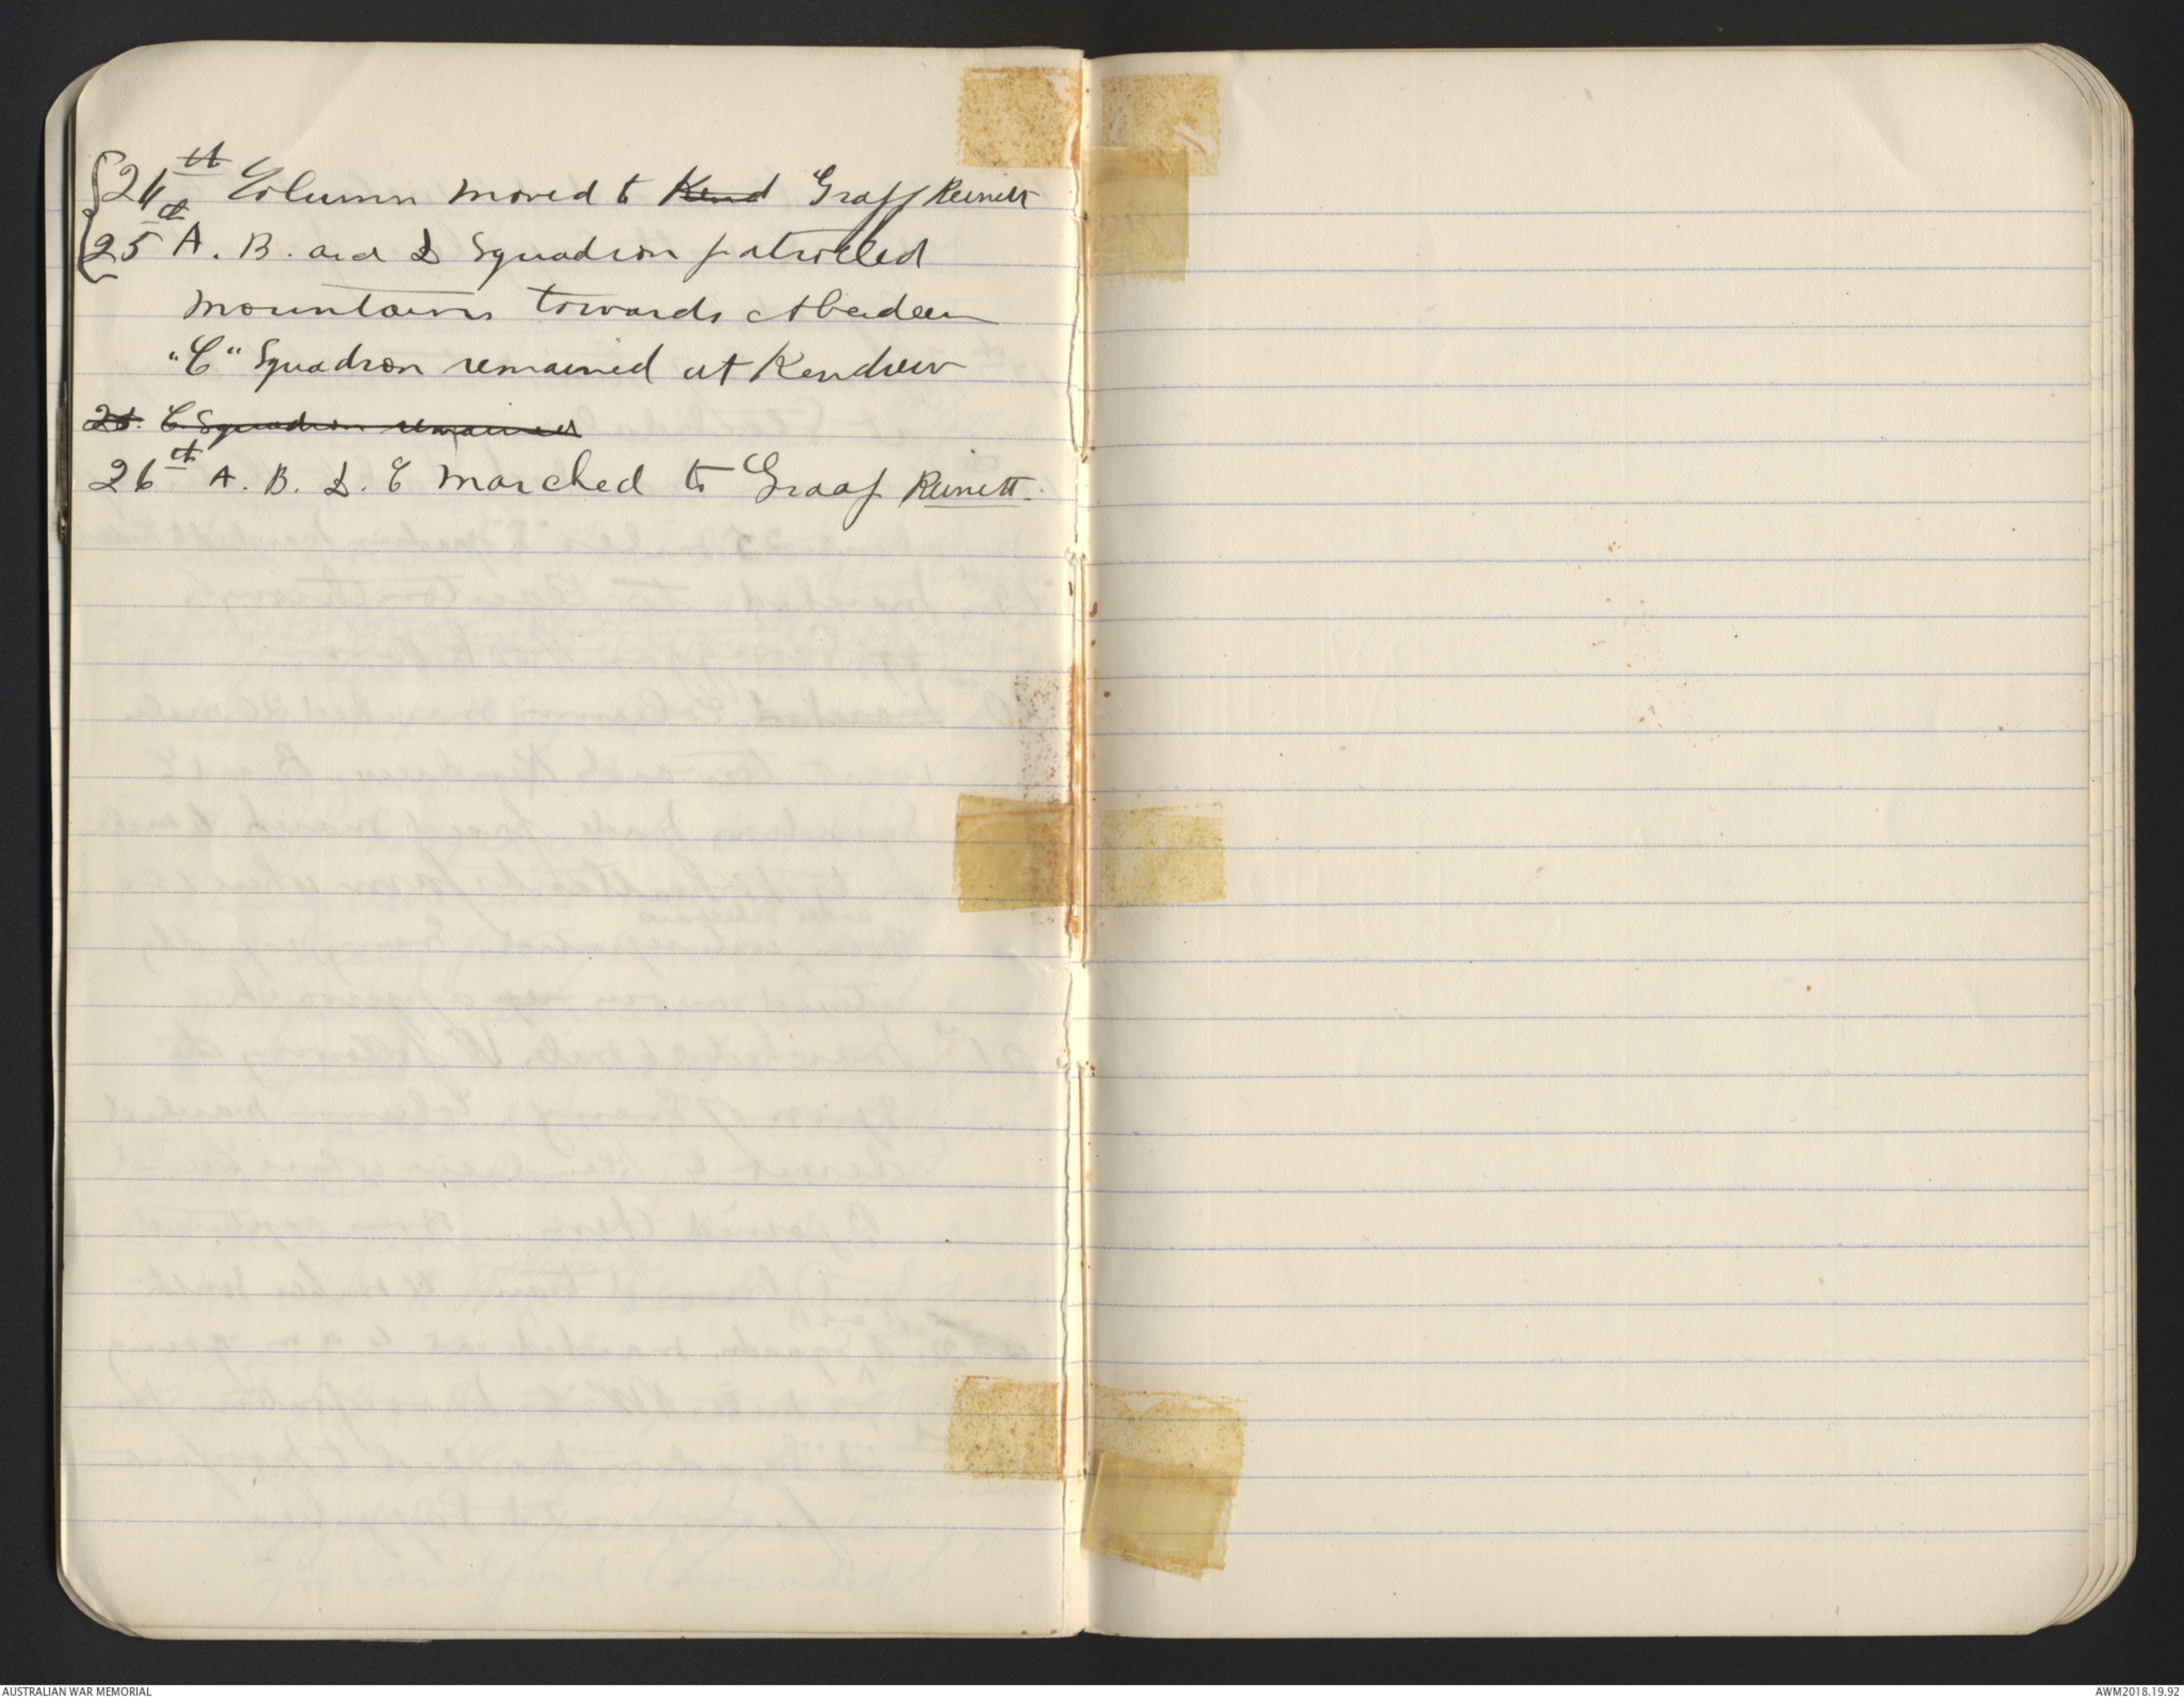 24th Column moved to Kend Graff Reinett
25th A. B. and D Squadron patrolled
mountains towards Aberdeen
"C" Squadron remained at Kendrew
25. C. Squadron remained
26th A. B. D. C marched to Graaf Reinett.
AUSTRALIAN WAR MEMORIAL
AWM2018.19.92